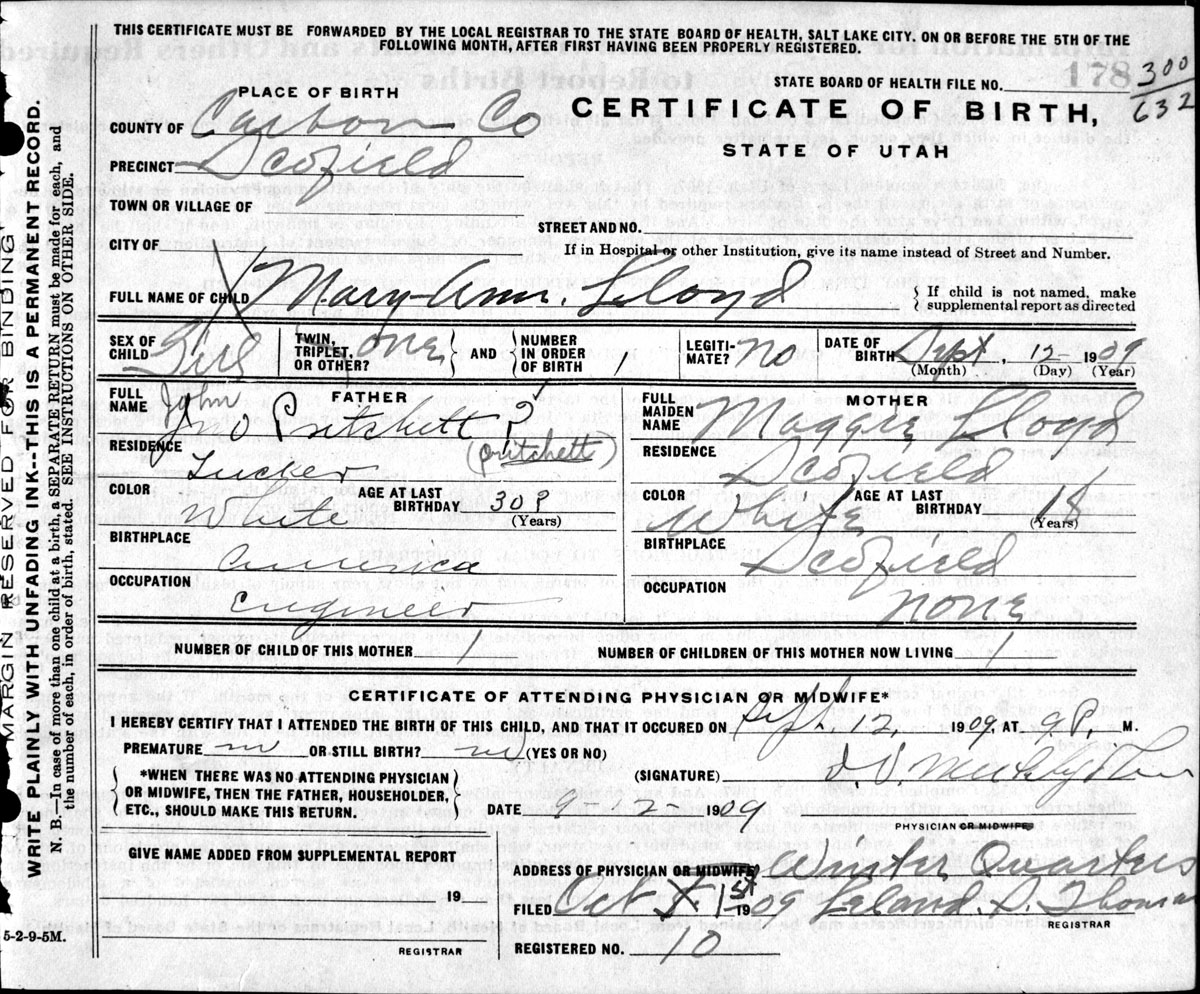 THIS CERTIFICATE MUST BE FORWARDED BY THE LOCAL REGISTRAR TO THE STATE BOARD OF HEALTH, SALT LAKE CITY, ON OR BEFORE THE 5TH OF THE
FOLLOWING MONTH, AFTER FIRST HAVING BEEN PROPERLY REGISTERED.
178
STATE BOARD OF HEALTH FILE NO. 300
632
PLACE OF BIRTH
CERTIFICATE OF BIRTH,
STATE OF UTAH
COUNTY OF Carbon Co
PRECINCT Scofield
TOWN OR VILLAGE OF
CITY OF
STREET AND NO.
If in Hospital or other Institution, give its name instead of Street and Number.
FULL NAME OF CHILD Mary Ann. Lloyd
} If child is not named, make
supplemental report as directed
SEX OF CHILD Girl
TWIN, TRIPLET, OR OTHER? one
} AND { NUMBER IN ORDER OF BIRTH 1
LEGITI-MATE? No
DATE OF BIRTH Sept. 12 - 1909
(Month) (Day) (Year)
FATHER
FULL NAME John
Jno Pritchett ?
RESIDENCE (Pritchett)
Tucker
COLOR White
AGE AT LAST BIRTHDAY 30?
(Years)
BIRTHPLACE
America
OCCUPATION
Engineer
MOTHER
FULL MAIDEN NAME Maggie Lloyd
RESIDENCE
Scofield
COLOR White
AGE AT LAST BIRTHDAY 18
(Years)
BIRTHPLACE
Scofield
OCCUPATION
none
NUMBER OF CHILD OF THIS MOTHER 1
NUMBER OF CHILDREN OF THIS MOTHER NOW LIVING 1
CERTIFICATE OF ATTENDING PHYSICIAN OR MIDWIFE*
I HEREBY CERTIFY THAT I ATTENDED THE BIRTH OF THIS CHILD, AND THAT IT OCCURED ON Sept 12, 1909, AT 9 P, M.
PREMATURE no OR STILL BIRTH? no (YES OR NO)
{ *WHEN THERE WAS NO ATTENDING PHYSICIAN
OR MIDWIFE, THEN THE FATHER, HOUSEHOLDER,
ETC., SHOULD MAKE THIS RETURN. }
(SIGNATURE)
DATE 9-2-1909
PHYSICIAN OR MIDWIFE
GIVEN NAME ADDED FROM SUPPLEMENTAL REPORT
19
REGISTRAR
ADDRESS OF PHYSICIAN OR MIDWIFE Winter Quarters
FILED Oct 1st 1909 Leland S. Thomas
REGISTRAR
REGISTERED NO. 10
5-2-9-5M.
MARGIN RESERVED FOR BINDING
WRITE PLAINLY WITH UNFADING INK--THIS IS A PERMANENT RECORD.
N. B.--In case of more than one child at a birth, a SEPARATE RETURN must be made for each, and
the number of each, in order of birth, stated. SEE INSTRUCTIONS ON OTHER SIDE.